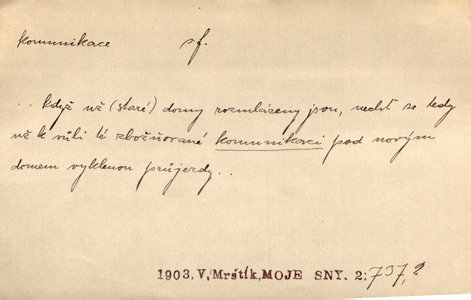 komunikace sf.
.. když už (staré) domy rozmláceny jsou, nechť se tedy
už k vůli té zbožňované komunikaci pod novým
domem vyklenou průjezdy..
1903, V, Mrštík, MOJE SNY. 2; 737,2